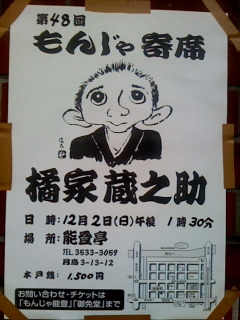 第48回
もんじゃ寄席
橘家 蔵之助
日 時:12月2日(日)午後 1時30分
場 所:能登亭
TEL 3533-3059
月島3-13-12
木戸銭:1,500円
お問い合わせ・チケットは
「もんじゃ能登」「御免堂」まで